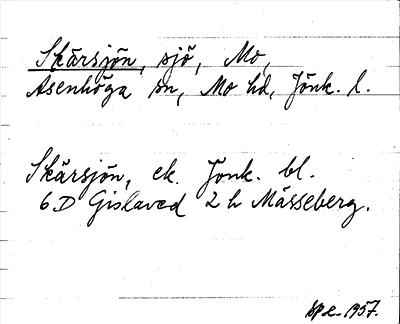 Skärsjön, sjö, Mo,
Åsenhöga sn, Mo hd, Jönk. l.
Skärsjön, ek. Jönk. bl.
6 D Gislaved 2 h Mässeberg.
1957.